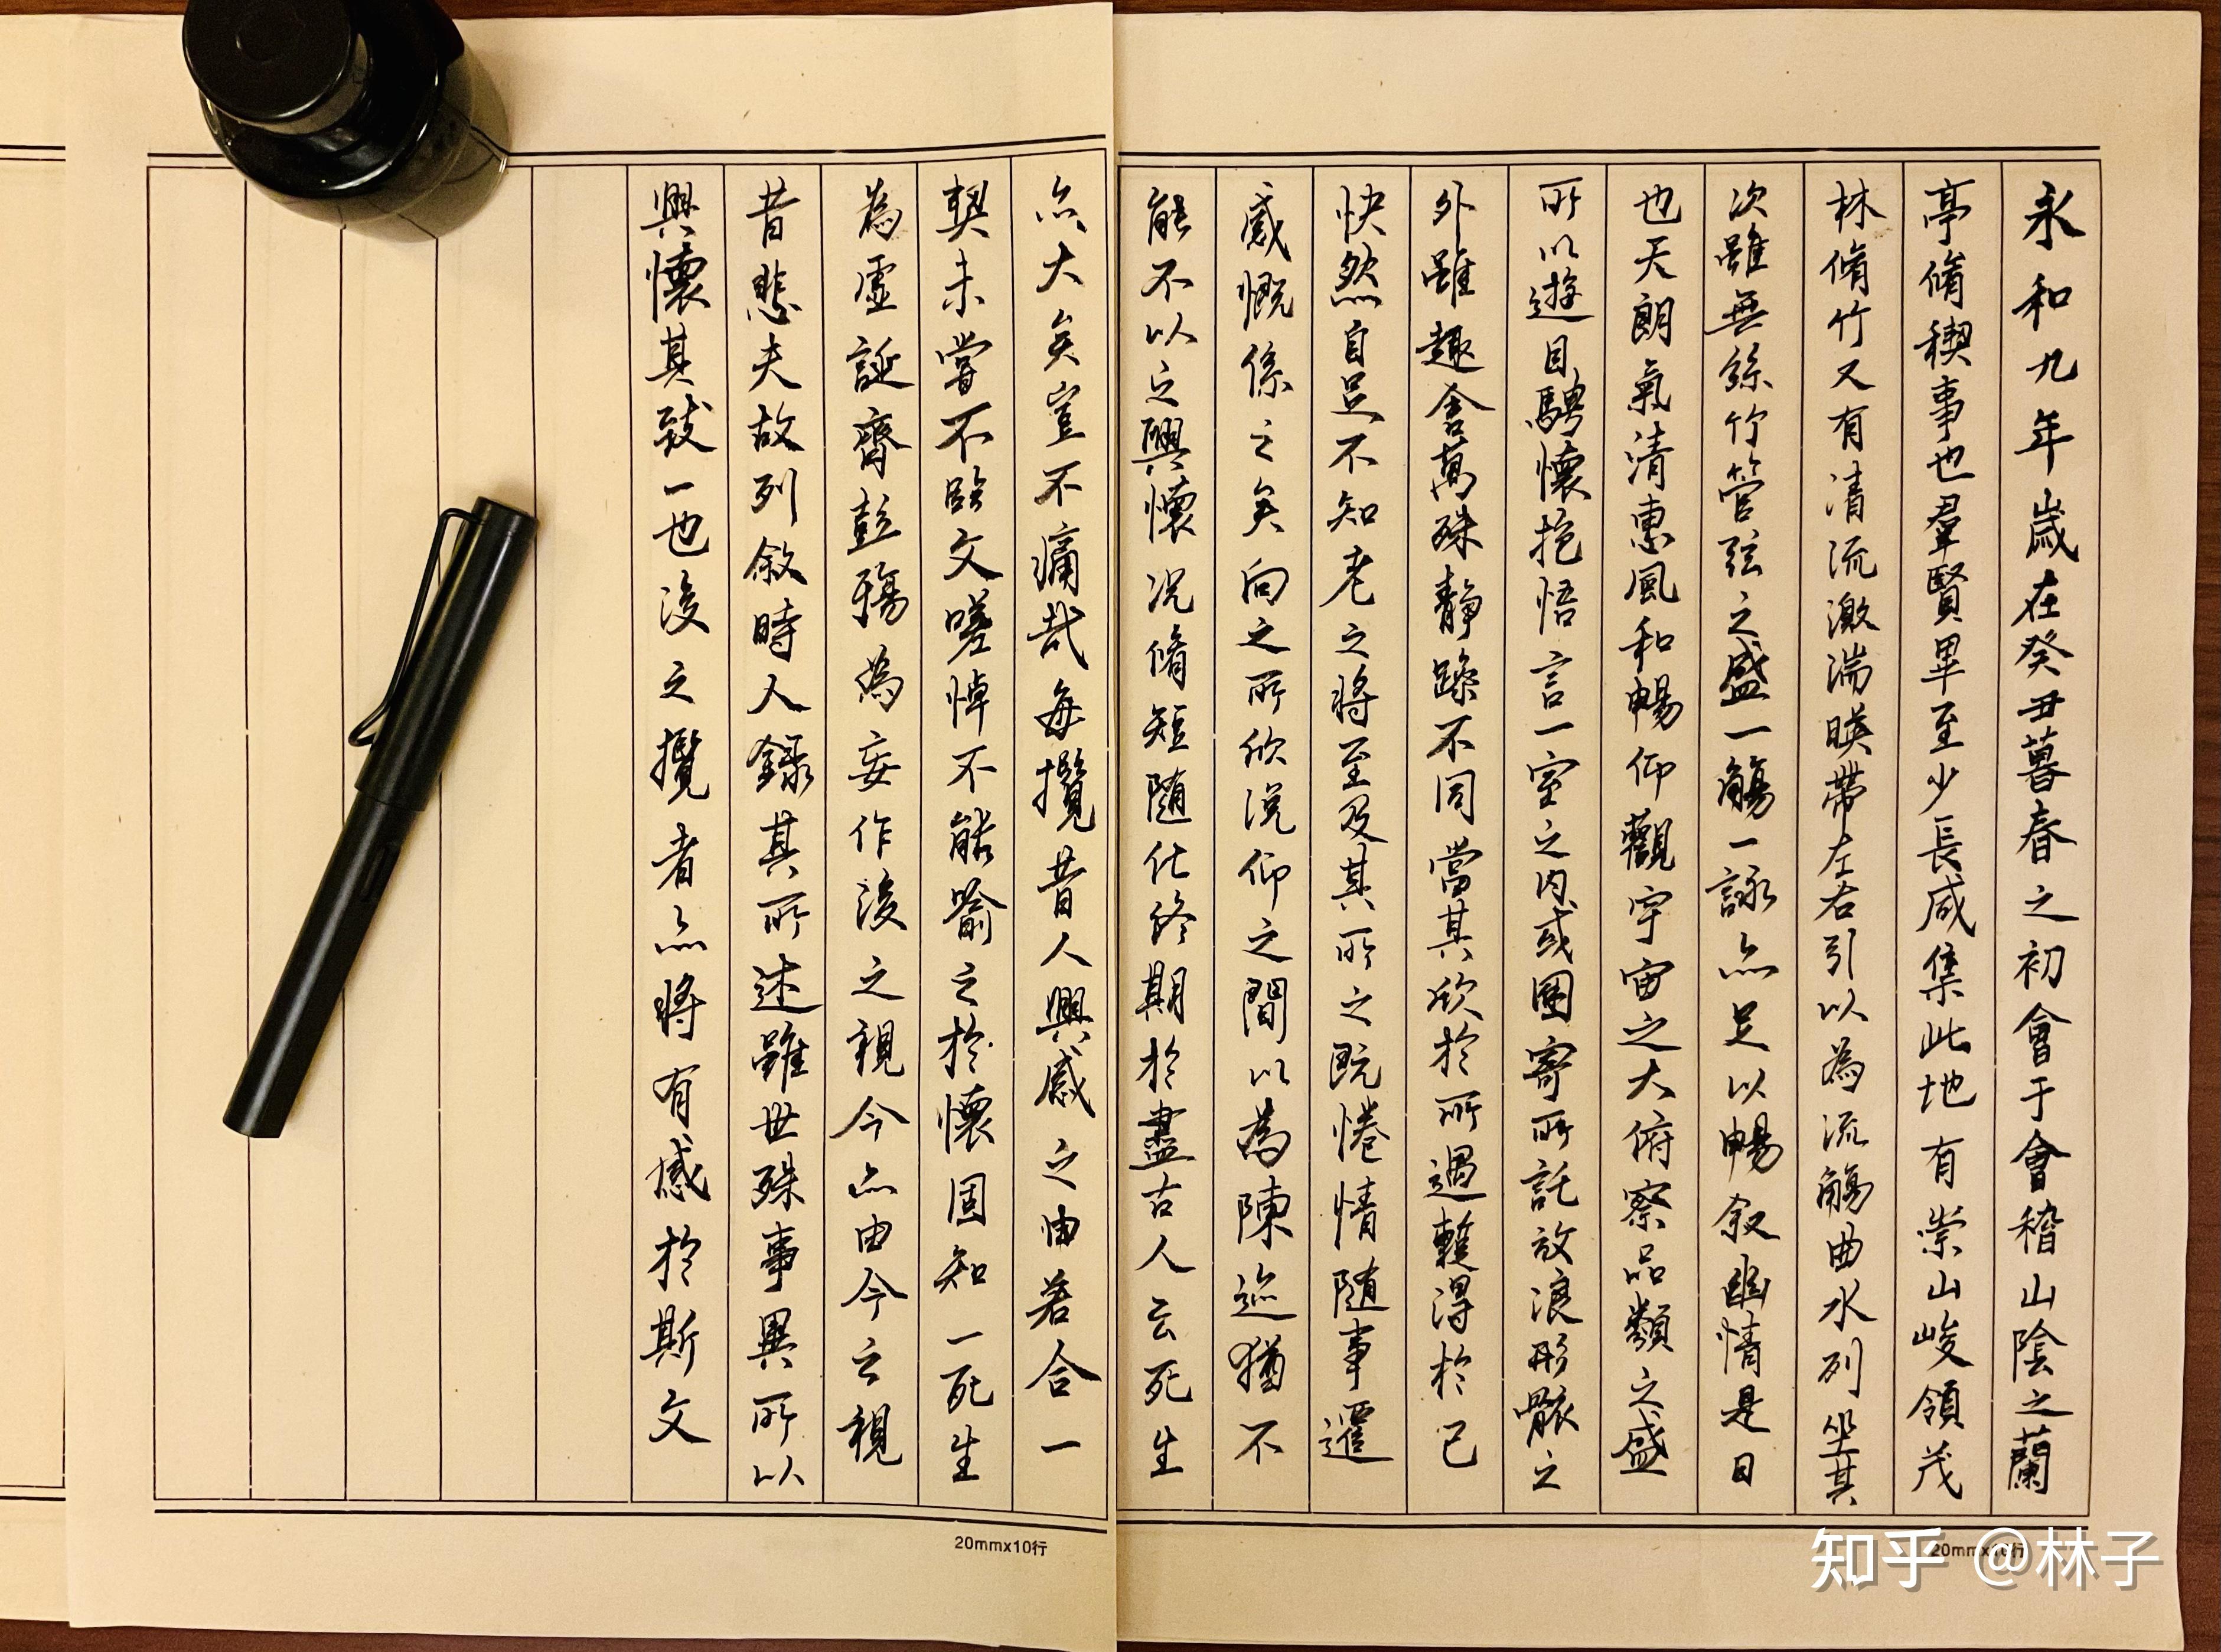 永和九年歲在癸丑暮春之初會于會稽山陰之蘭
亭脩稧事也羣賢畢至少長咸集此地有崇山峻領茂
林脩竹又有清流激湍暎帶左右引以為流觴曲水列坐其
次雖無絲竹管弦之盛一觴一詠亦足以暢叙幽情是日
也天朗氣清惠風和暢仰觀宇宙之大俯察品類之盛
所以遊目騁懷抱悟言一室之内或因寄所託放浪形骸之
外雖趣舍萬殊静躁不同當其欣於所遇蹔得於己
怏然自足不知老之將至及其所之既惓情隨事遷
感慨係之矣向之所欣俛仰之間以為陳迹猶不
能不以之興懷况脩短隨化終期於盡古人云死生
亦大矣豈不痛哉每攬昔人興感之由若合一
契未嘗不臨文嗟悼不能喻之於懷固知一死生
為虛誕齊彭殤為妄作後之視今亦由今之視
昔悲夫故列敘時人錄其所述雖世殊事異所以
興懷其致一也後之攬者亦將有感於斯文
20mmx10行
20mmx10行
知乎 @林子